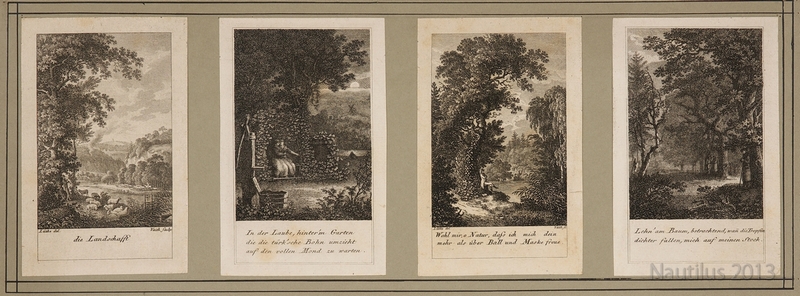 Lüthi del.
Veith sculp.
die Landschafft
In der Laube, hinter'm Garten
die die türk'sche Bohn umzieht
auf den vollen Mond zu warten
Wohl mir, o Natur, dass ich mich dein
mehr als über Ball und Maske freue
Lehn' am Baum, betrachtend, und die
dichter fallen, mich auf meinen Stock.
Nautilus 2013